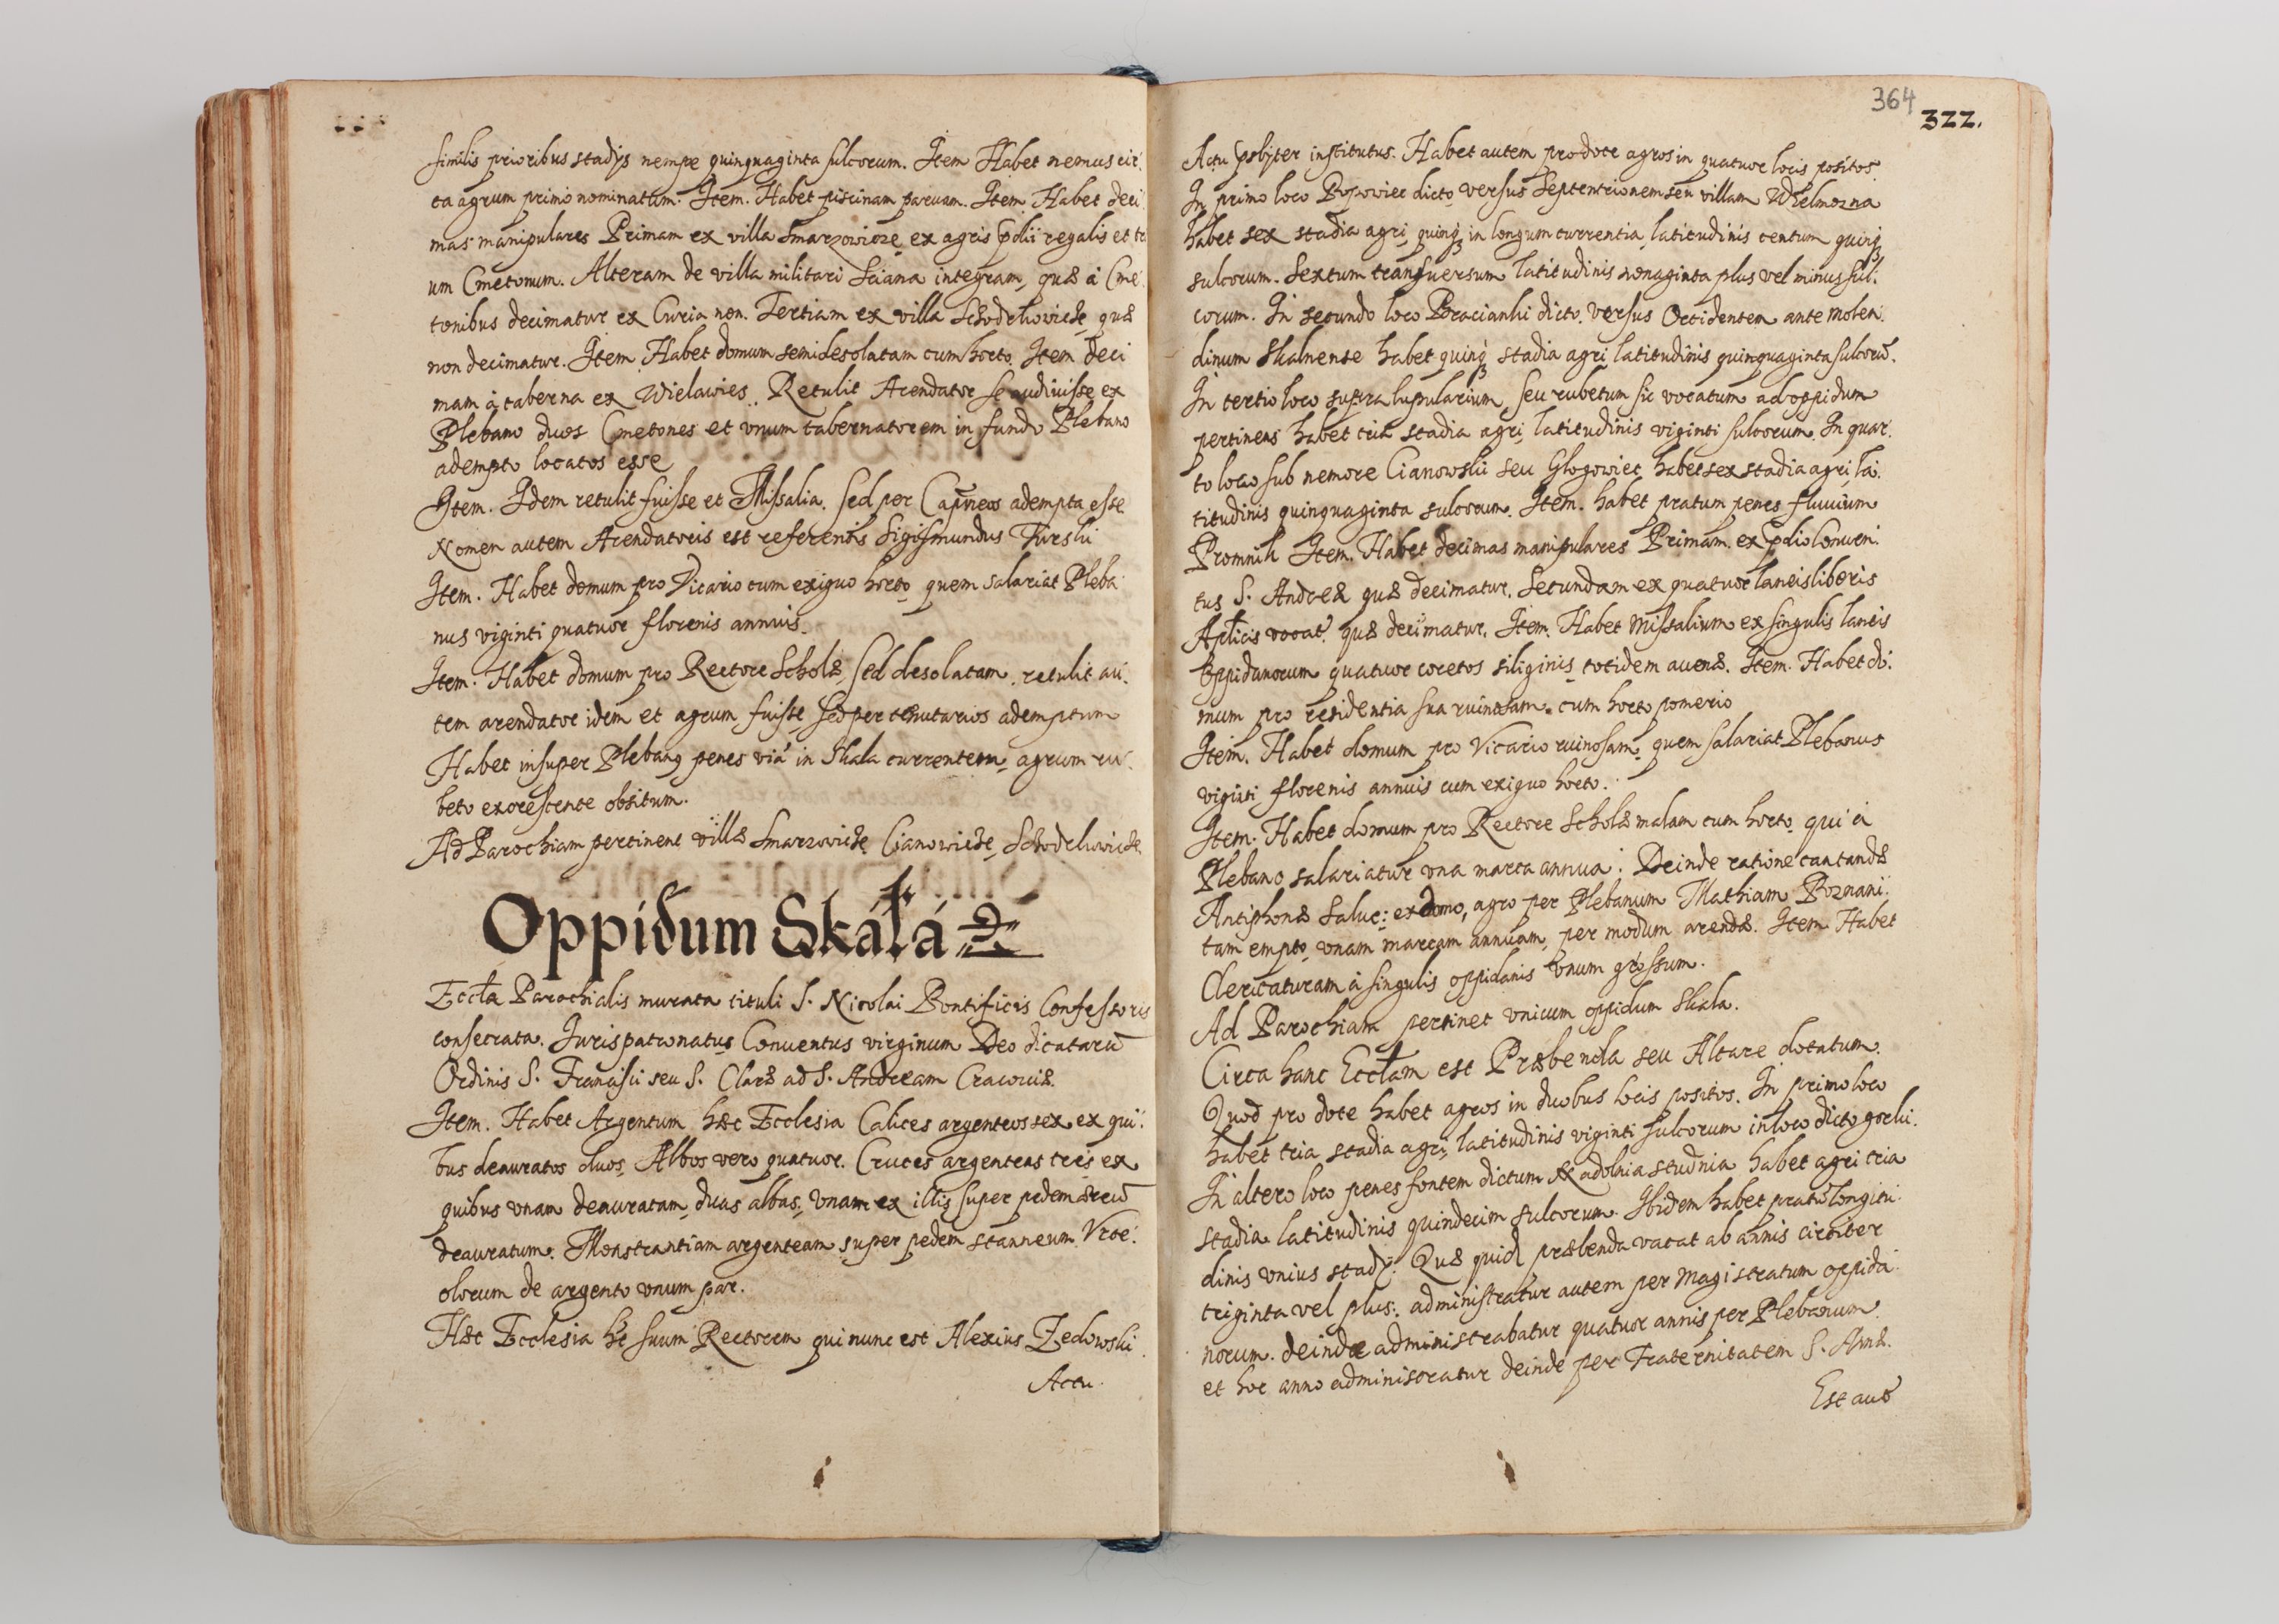 similis prioribus stadÿs nempe quinquaginta sulcorum. Item Habet nemus cir¬
ca agrum primo nominatum. Item. Habet piscinam paruam. Item Habet deci¬
mas manipulares Primam ex villa Smarzowicze ex agris pdii regalis et
um Cmetonum. Alteram de villa militari Sciana integram, quæ a Cme¬
tonibus decimatur ex Curia non. Tertiam ex villa quæ
non decimatur. Item Habet domum semidesolatam cum horto. Item deci
mam a taberna ex Wielawies. Retulit Arendator se audiuisse ex
Plebano duos Cmetones et vnum tabernatorem in fundo Plebano
adempto locatos esse
Item. Idem retulit fuisse et Missalia. sed per adempta esse
Nomen autem Arendatoris est referentis Sigismundus Turski
Item. Habet domum pro Vicario cum exiguo horto quem salariat Pleba¬
nus viginti quatuor florenis annuis.
Item. Habet domum pro Rectore Scholæ, sed desolatam, retulit au¬
tem arendator idem et agrum fuisse sed per tenutarios ademptum
Habet insuper Plebanꝰ penes viā in Skala currentem, agrum ru¬
beto excrescente obsitum.
Ad Parochiam pertinent villæ Smarzowicze Cianowicze,
Oppidum Skáłá
Eccła Parochialis murata tituli S. Nicolai Pontificis Confessoris
consecrata. Iurispatronatus Conuentus virginum Deo dicatarū
Ordinis S. Francisci seu S. Claræ ad S. Andream Cracouiæ.
Item. Habet Argentum hæc Ecclesia Calices argenteos sex ex qui¬
bus deauratos duos, Albos vero quatuor. Cruces argenteas tres ex
quibus vnam deauratam, duas albas, vnam ex illis super pedem æreū
deauratum. Monstrantiam argenteam super pedem stanneum. Vrce¬
olorum de argento vnum par.
Hæc Ecclesia ht suum Rectorem qui nunc est Alexius Zedowski
Actu
364
322.
Actu psbÿter institutus. Habet autem pro dote agros in quatuor locis positos.
In primo loco Popowiec dicto versus Septentrionem seu villam Wielmozna
habet sex stadia agri, quinqꝫ in longum currentia, latitudinis centum quinqꝫ
sulcorum. Sextum transuersum latitudinis nonaginta plus vel minus sul¬
corum. In secundo loco Pracianki dicto versus Occidentem ante molen¬
dinum Skalnense habet quinqꝫ stadia agri latitudinis quinquaginta sulcorū.
In tertio loco supra lupularium seu rubetum sic vocatum ad oppidum
pertinens habet tria stadia agri latitudinis viginti sulcorum. In quar¬
to loco sub nemore Cianowski seu Glogowiec habet sex stadia agri la¬
titudinis quinquaginta sulcorum. Item. habet pratum penes fluuium
Promnik Item. Habet decimas manipulares Primam ex pdio Conuen¬
tus S. Andreæ quæ decimatur. Secundam ex quatuor laneis liberis
vocat. quæ decimatur. Item. Habet Missalium ex singulis laneis
Oppidanorum quatuor coretos siliginis totidem auenæ. Item. Habet do¬
mum pro residentia sua ruinosam cum horto pomerio
Item. Habet domum pro Vicario ruinosam, quem salariat Plebanus
viginti florenis annuis cum exiguo horto.
Item. Habet domum pro Rectore Scholæ malam cum horto qui a
Plebano salariatur vna marca annua. Deinde ratione cantandæ
Antiphonæ Salue: ex domo, agro per Plebanum Mathiam Poznani¬
tam empto vnam marcam annuam, per modum arendæ. Item Habet
Clericaturam a singulis oppidanis vnum grossum.
Ad Parochiam pertinet vnicum oppidum Skala.
Circa hanc Eccłam est Præbenda seu Altare dotatum.
Quod pro dote habet agros in duobus locis positos. In primo loco
habet tria stadia agri latitudinis viginti sulcorum in loco dicto gorki.
In altero loco penes fontem dictum Nadolnia studnia habet agri tria
stadia latitudinis quindecim sulcorum. Ibidem habet pratū longitu¬
dinis vnius stadÿ. Quæ quid præbenda vacat ab annis circiter
triginta vel plus: administratur autem per Magistratum oppida¬
norum. deinde administrabatur quatuor annis per Plebanum
et hoc anno administratur deinde per Fraternitatem S. Annæ.
Est aut